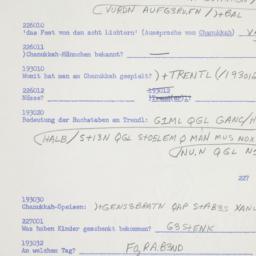 (VURDN AUFG3RUFN /)+BAL
226010
'das Fest von den acht Lichtern' (Aussprache von Chanukkah)
226011
)Chanukkah-Männchen bekannt? —
193010
Womit hat man an Chanukkah gespielt? )+TRENTL(/19301
226012 193012
Nüsse?
193020
Bedeutung der Buchstaben am Trendl: G1ML QGL GANC/H
HALB/S+I3N QGL S+OSLEM Q MAN MUS NOX
/NU,N QGL N
227
193030
Chanukkah-Speisen: )+GENS3BRATN QAP S+AB3S XANU
227001
Was haben Kinder geschenkt bekommen? G3S+ENK
193032
An welchem Tag? FQRAB3ND